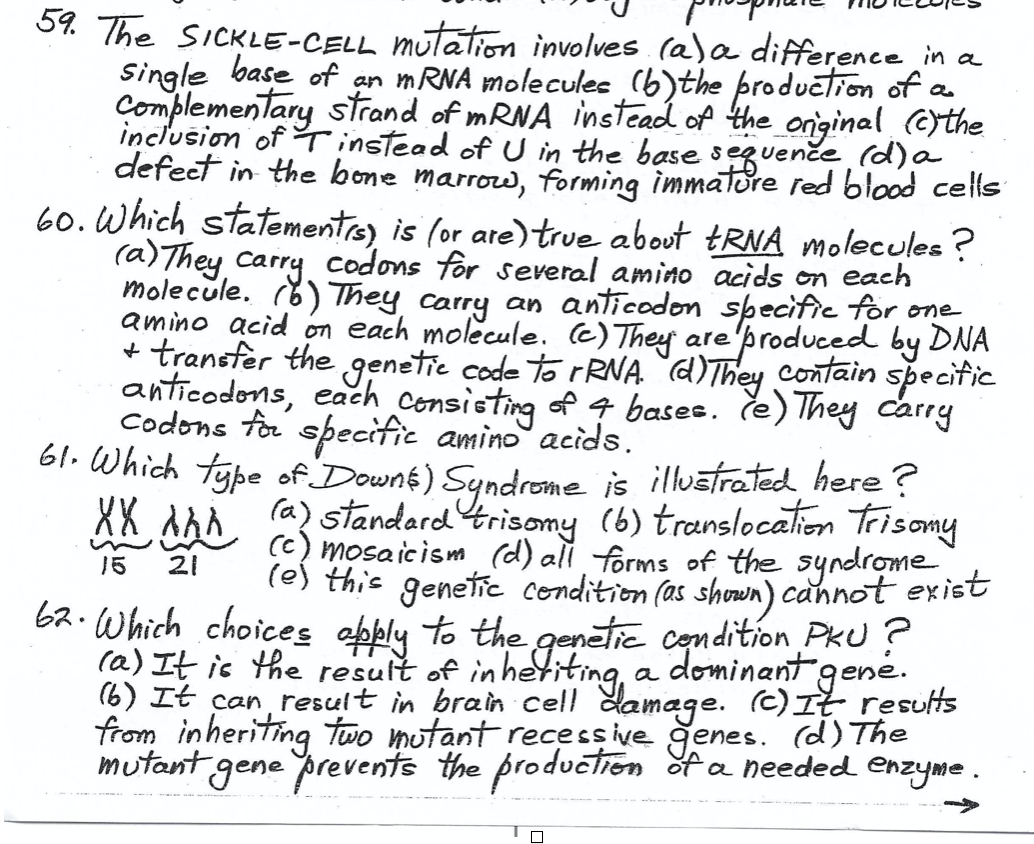 phosphate molecules
59. The SICKLE-CELL mutation involves (a) a difference in a
single base of an mRNA molecules (b) the production of a
complementary strand of mRNA instead of the original (c) the
inclusion of T instead of U in the base sequence (d) a
defect in the bone marrow, forming immature red blood cells
60. Which statement(s) is (or are) true about tRNA molecules?
(a) They carry codons for several amino acids on each
molecule. (b) They carry an anticodon specific for one
amino acid on each molecule. (c) They are produced by DNA
+ transfer the genetic code to rRNA. (d) They contain specific
anticodons, each consisting of 4 bases. (e) They carry
codons for specific amino acids.
61. Which type of Down(s) Syndrome is illustrated here?
(a) standard trisomy (b) translocation Trisomy
(c) mosaicism (d) all forms of the syndrome
15 21
(e) this genetic condition (as shown) cannot exist
62. Which choices apply to the genetic condition PKU?
(a) It is the result of inheriting a dominant gene.
(b) It can result in brain cell damage. (c) It results
from inheriting two mutant recessive genes. (d) The
mutant gene prevents the production of a needed enzyme.